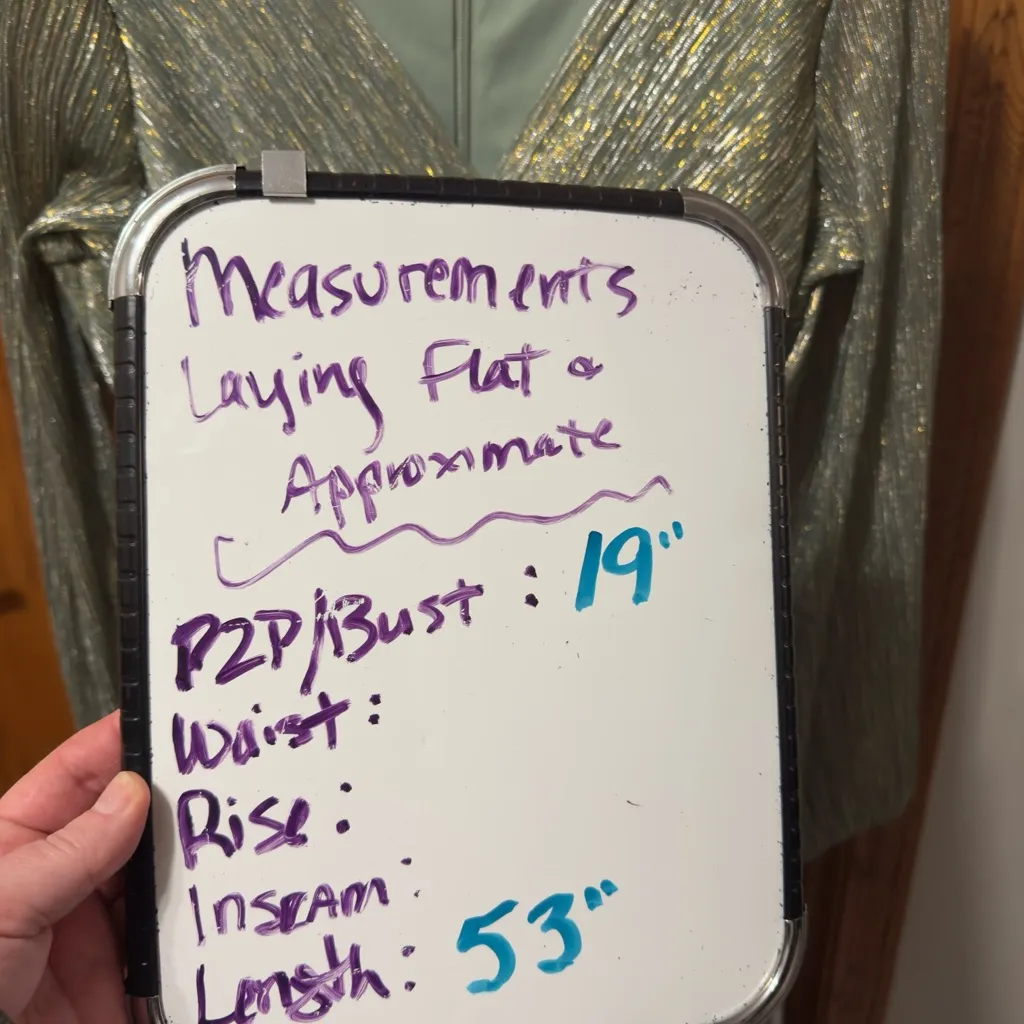 Measurements
Laying Flat &
Approximate
P2P/Bust : 19"
Waist :
Rise :
Inseam :
Length : 53"